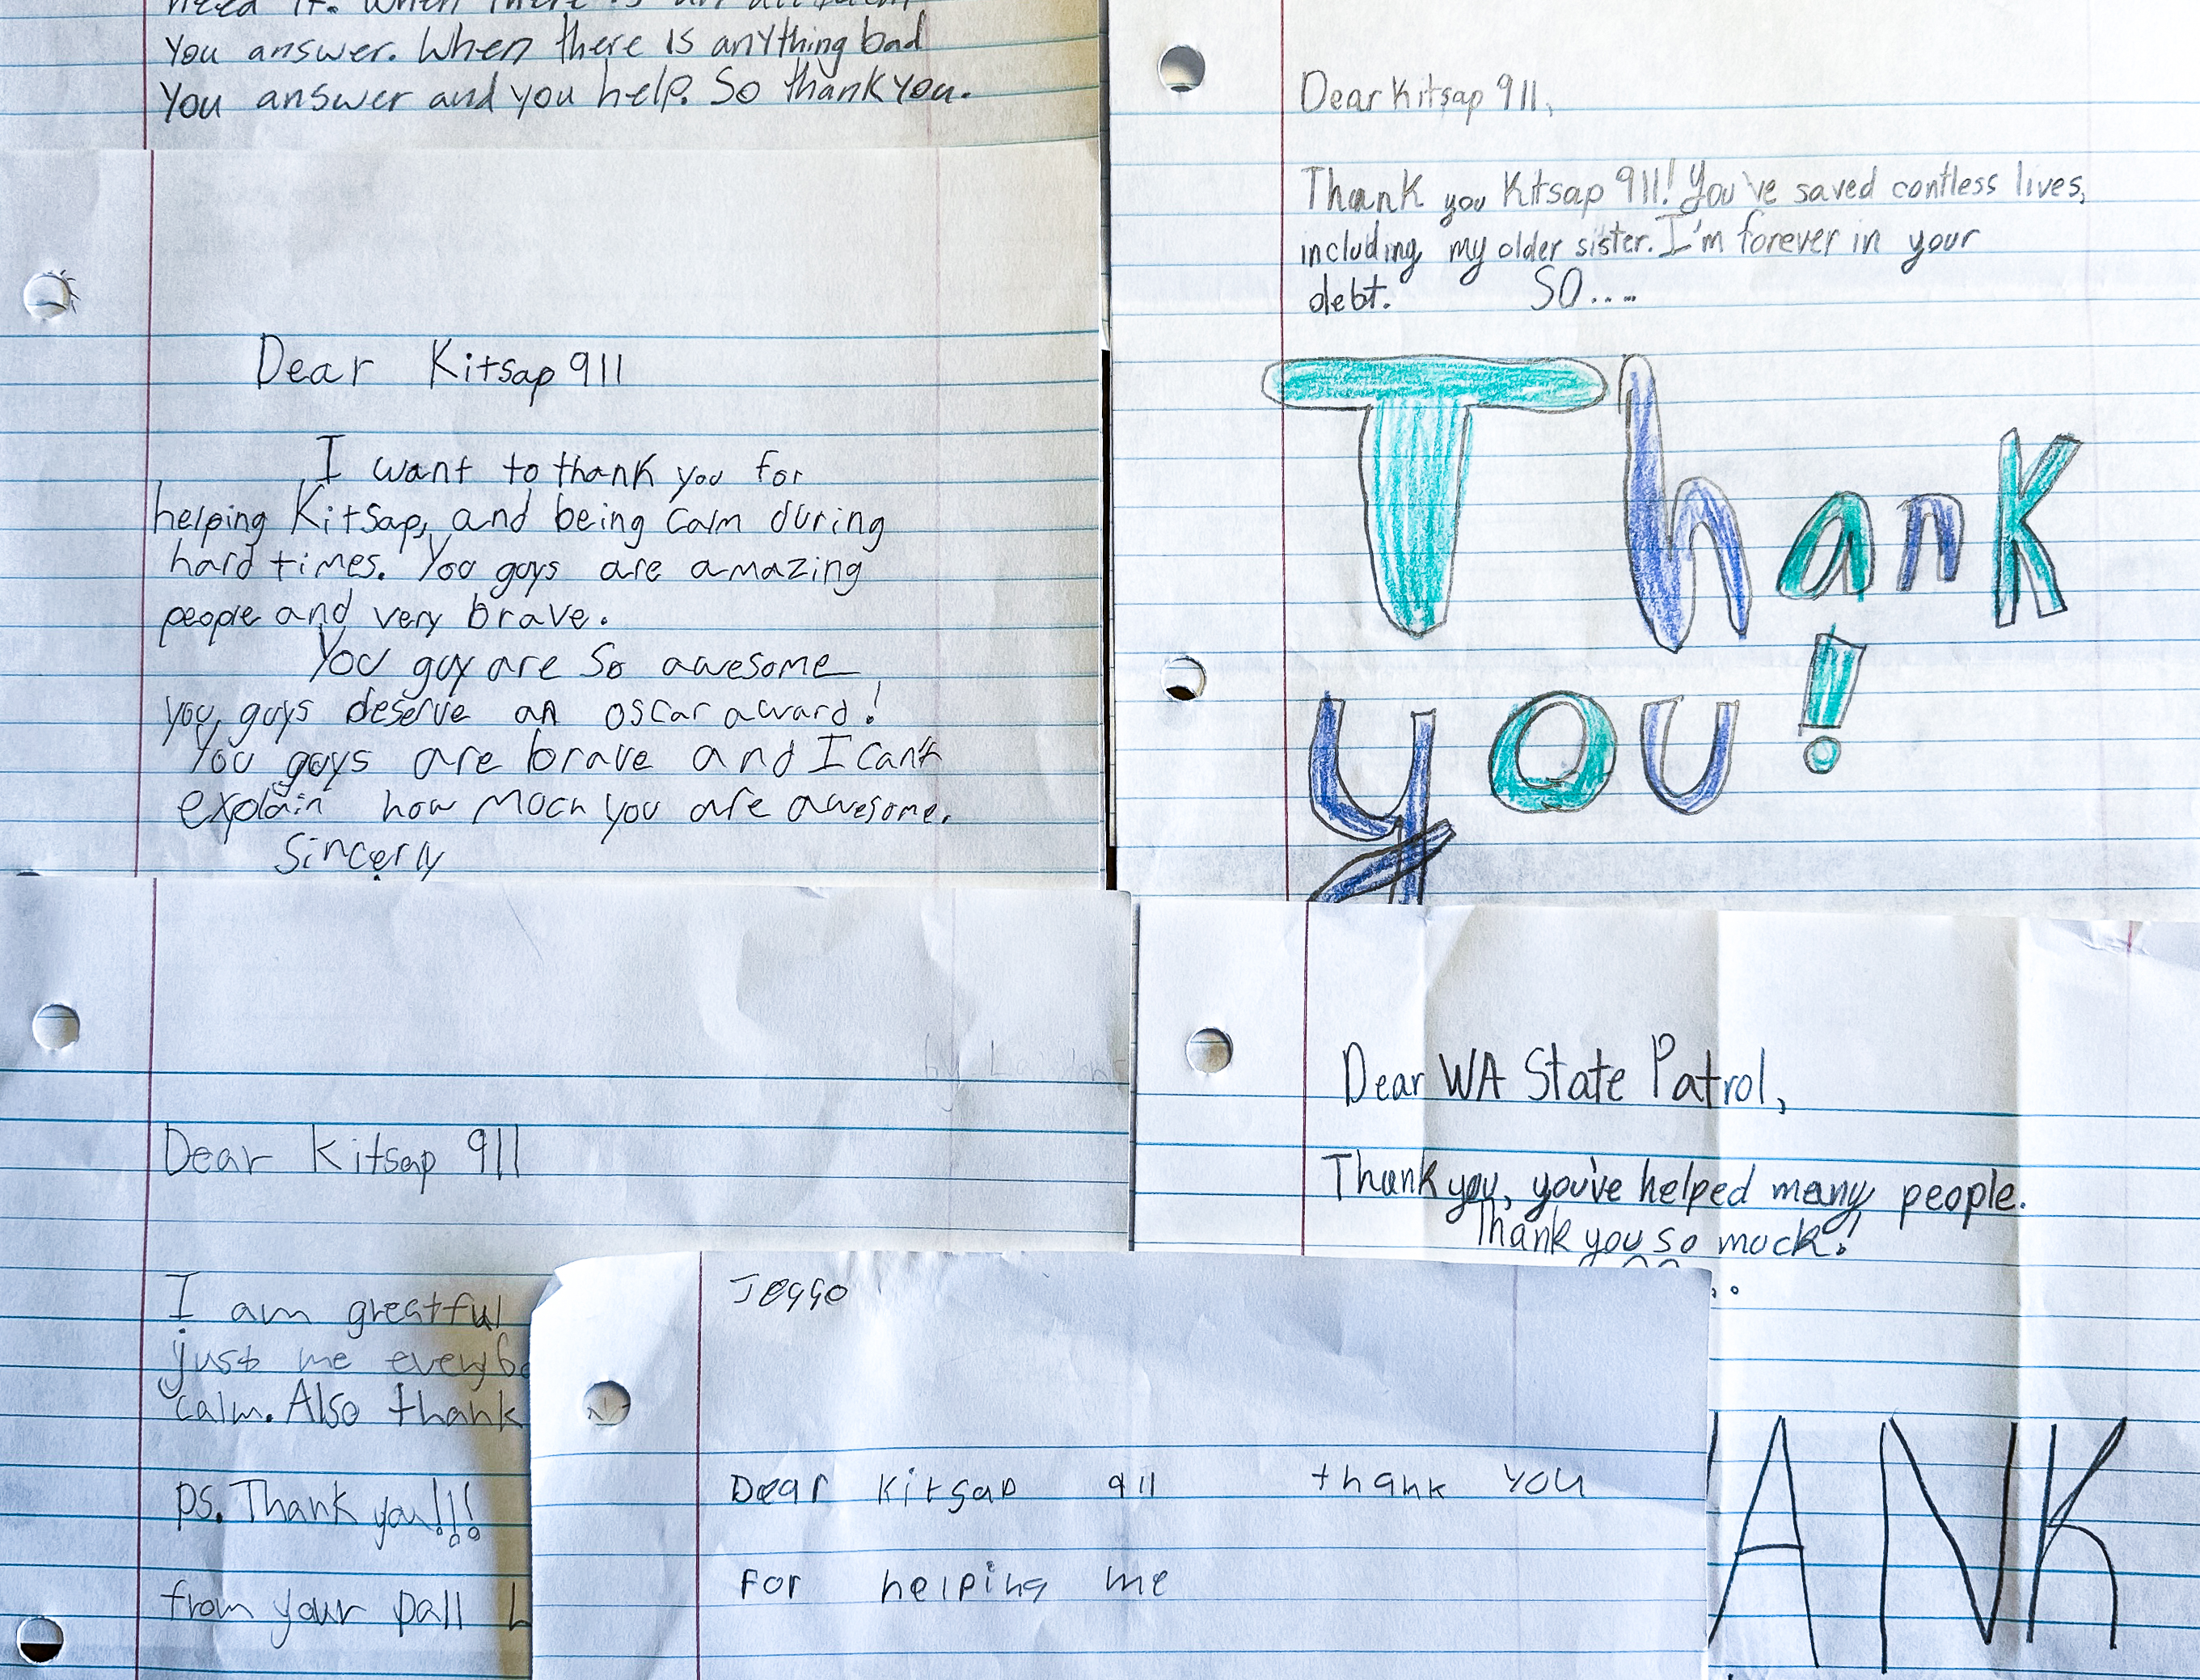 need it. When there is an accident
You answer. When there is anything bad
You answer and you help. So thank you.
Dear Kitsap 911
I want to thank you for
helping Kitsap, and being calm during
hard times. You guys are amazing
people and very brave.
You guy are so awesome
you guys deserve an oscar award!
You guys are brave and I can't
explain how much you are awesome.
Sincerly
Dear Kitsap 911,
Thank you Kitsap 911! You've saved contless lives,
including my older sister. I'm forever in your
debt. SO....
Thank
you!
by
Dear Kitsap 911
I am greatful
just me everybo
calm. Also thank
ps. Thank you!!!
from your pall L
Dear WA State Patrol,
Thank you, you've helped many people.
Thank you so much!
ANK
Jeggo
Dear Kitsap 911 thank you
For helping me